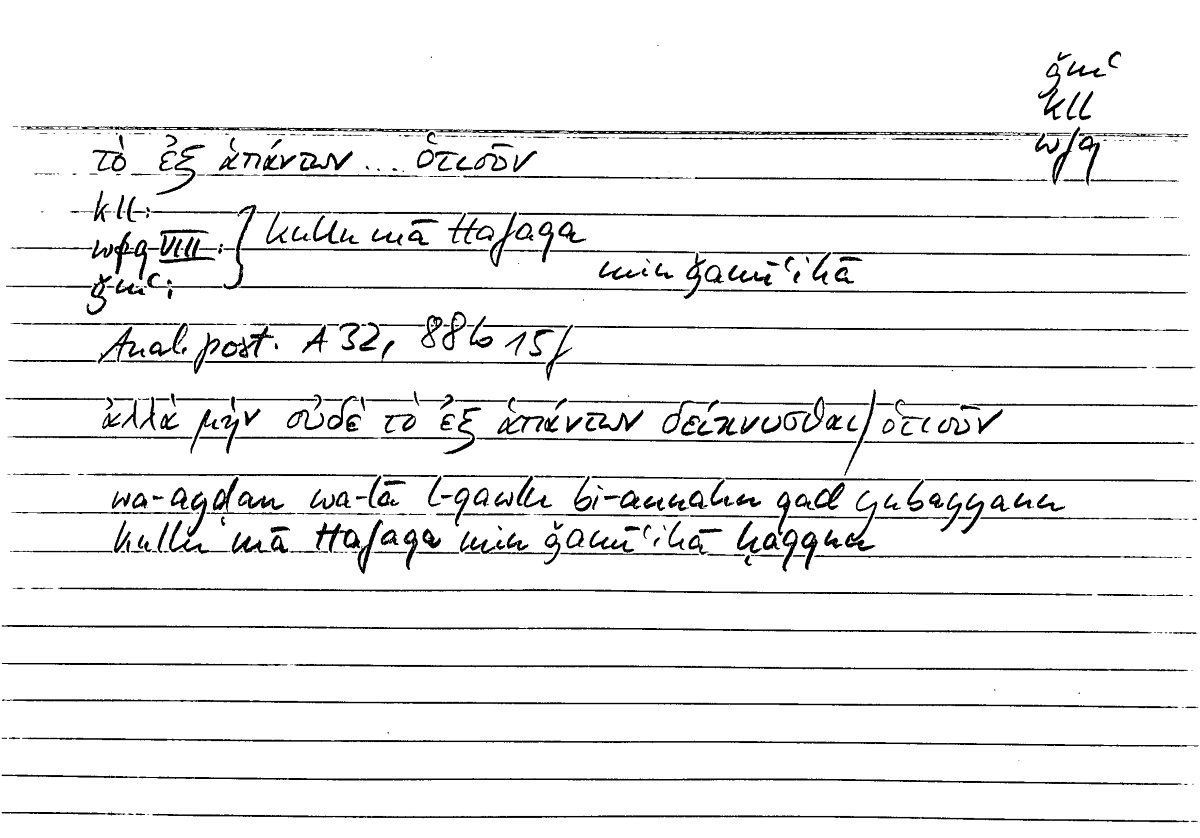 ǧmʿ
kll
wfq
τὸ ἐξ ἁπάντων ... ὁτιοῦν
kll:
wfq VIII:
ǧmʿ:
kullu mā ttafaqa
min ǧamīʿihā
Anal. post. A 32, 88b 15f
ἀλλὰ μὴν οὐδὲ τὸ ἐξ ἁπάντων δείκνυσθαι / ὁτιοῦν
wa-ayḍan wa-lā l-qawlu bi-annahu qad yubayyanu
kullu mā ttafaqa min ǧamīʿihā ḥaqqun